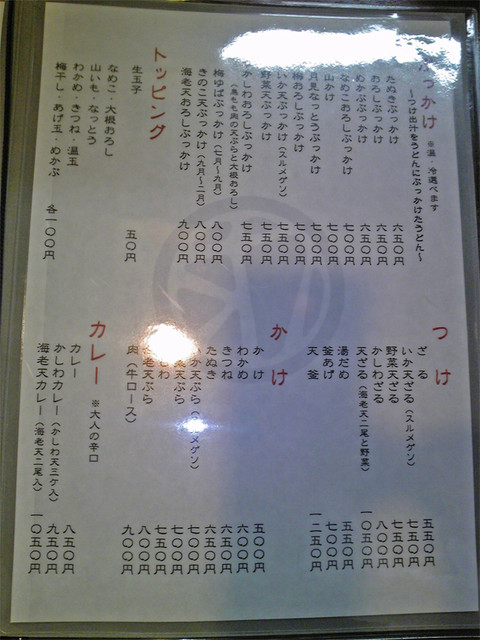 ぶっかけ ※温・冷選べます
〜つけ出汁をうどんにぶっかけたうどん〜
たぬきぶっかけ 六五〇円
おろしぶっかけ 六五〇円
めかぶぶっかけ 六五〇円
なめこおろしぶっかけ 七〇〇円
山かけ 七〇〇円
月見なっとうぶっかけ 七〇〇円
梅おろしぶっかけ 七〇〇円
いか天ぶっかけ（スルメゲソ） 七五〇円
野菜天ぶっかけ 七五〇円
かしわおろしぶっかけ 七五〇円
（鳥もも肉の天ぷらと大根おろし）
梅ゆばぶっかけ（七月〜九月） 八〇〇円
きのこ天ぶっかけ（九月〜二月） 八〇〇円
海老天おろしぶっかけ 九〇〇円
トッピング
生玉子 五〇円
なめこ・大根おろし
山いも・なっとう
わかめ・きつね・温玉
梅干し・あげ玉・めかぶ 各一〇〇円
つけ
ざる 五五〇円
いか天ざる（スルメゲソ） 七五〇円
野菜天ざる 七五〇円
かしわざる 八〇〇円
天ざる（海老天二尾と野菜） 一〇五〇円
湯だめ 五五〇円
釜あげ 七〇〇円
天釜 一二五〇円
かけ
かけ 五〇〇円
わかめ 六〇〇円
きつね 六五〇円
たぬき 六五〇円
いか天ぷら（スルメゲソ） 七〇〇円
天ぷら 七〇〇円
しわ 七五〇円
老天ぷら 八〇〇円
肉（牛ロース） 九〇〇円
カレー ※大人の辛口
カレー 八五〇円
かしわカレー（かしわ天三ケ入） 九五〇円
海老天カレー（海老天二尾入） 一〇五〇円